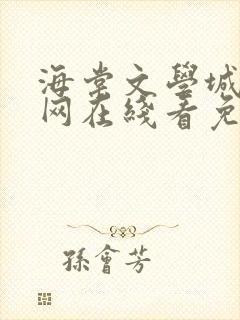 海棠文學城
网在綫看免
孫會芳